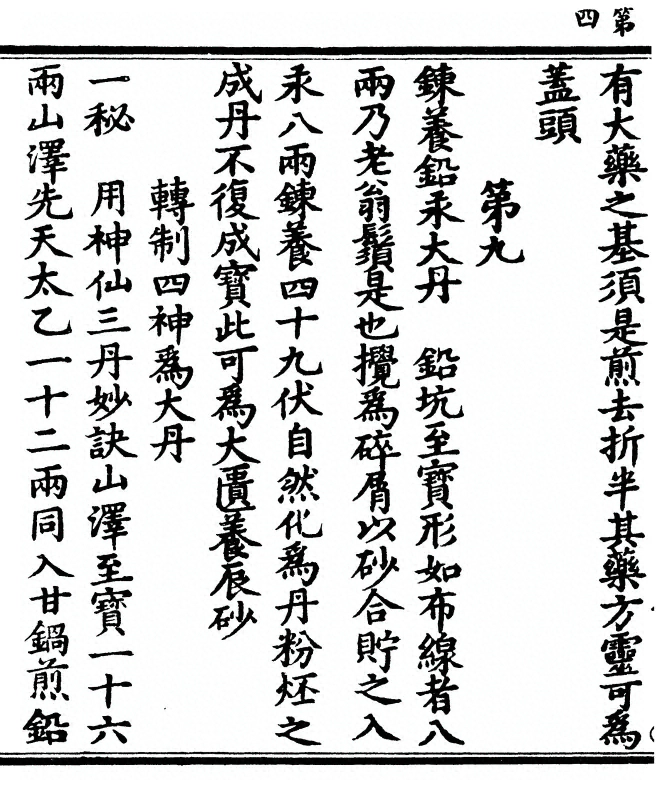 第四
有大藥之基須是煎去折半其藥方靈可為
蓋頭
第九
鍊養鉛汞大丹　鉛坑至寶形如布線者八
兩乃老翁鬚是也攪為碎屑以砂合貯之入
汞八兩鍊養四十九伏自然化為丹粉炻之
成丹不復成寶此可為大匱養辰砂
轉制四神為大丹
一秘　用神仙三丹妙訣山澤至寶一十六
兩山澤先天太乙一十二兩同入甘鍋煎鉛